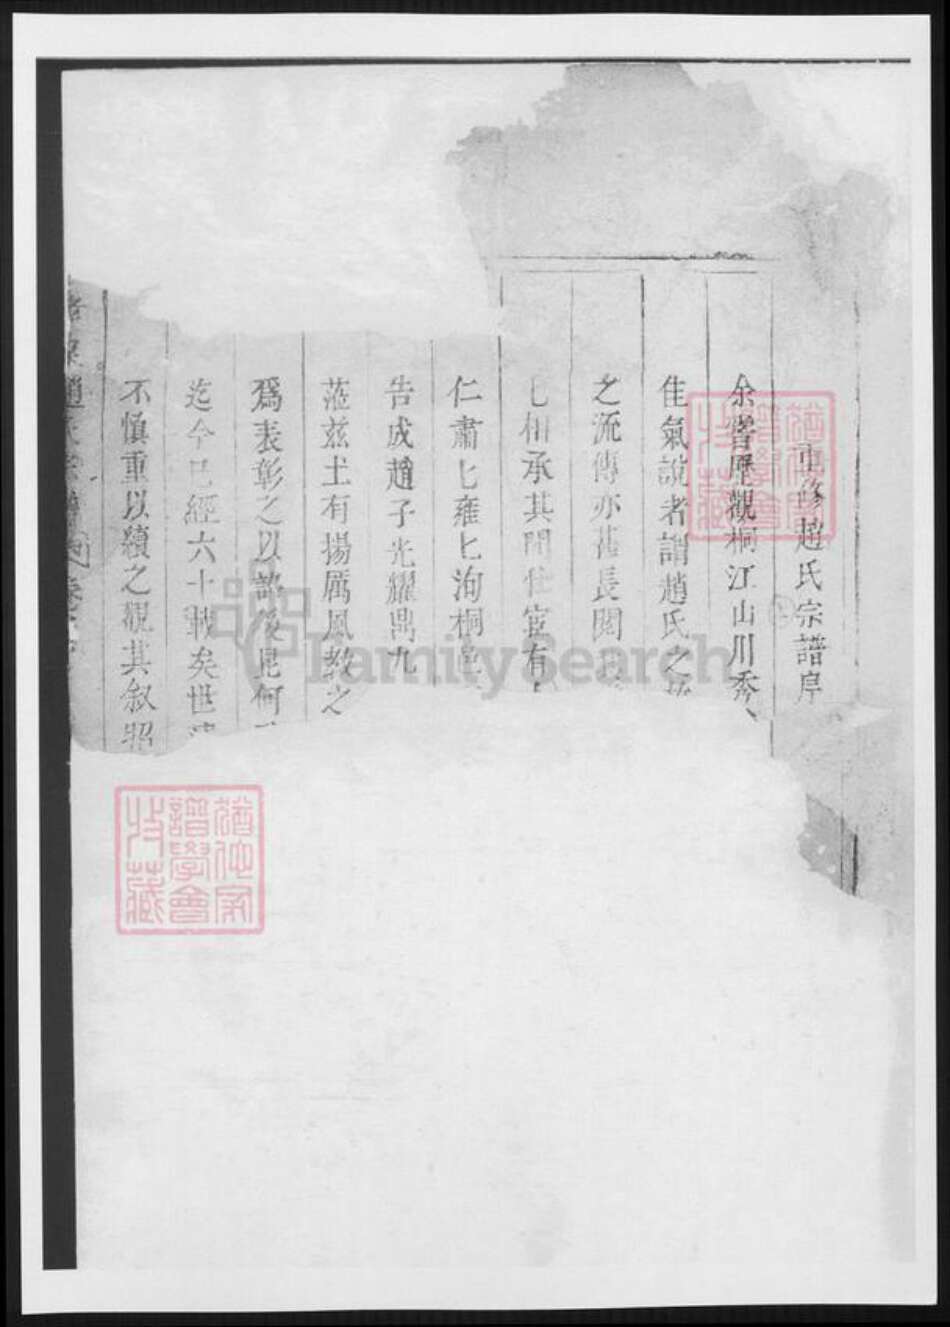 重修趙氏宗譜序
余嘗歷觀桐江山川秀
佳氣說者謂趙氏之
之流傳亦甚長閱
匕相承其間仕宦有
仁肅匕雍匕洵桐邑
告成趙子光耀鼎九
蒞兹土有揚厲風教之
爲表彰之以詔後昆何
迄今已經六十載矣世
不慎重以續之觀其叙昭
趙氏宗譜
FamilySearch
猶他家
譜學會
收藏
猶他家
譜學會
收藏